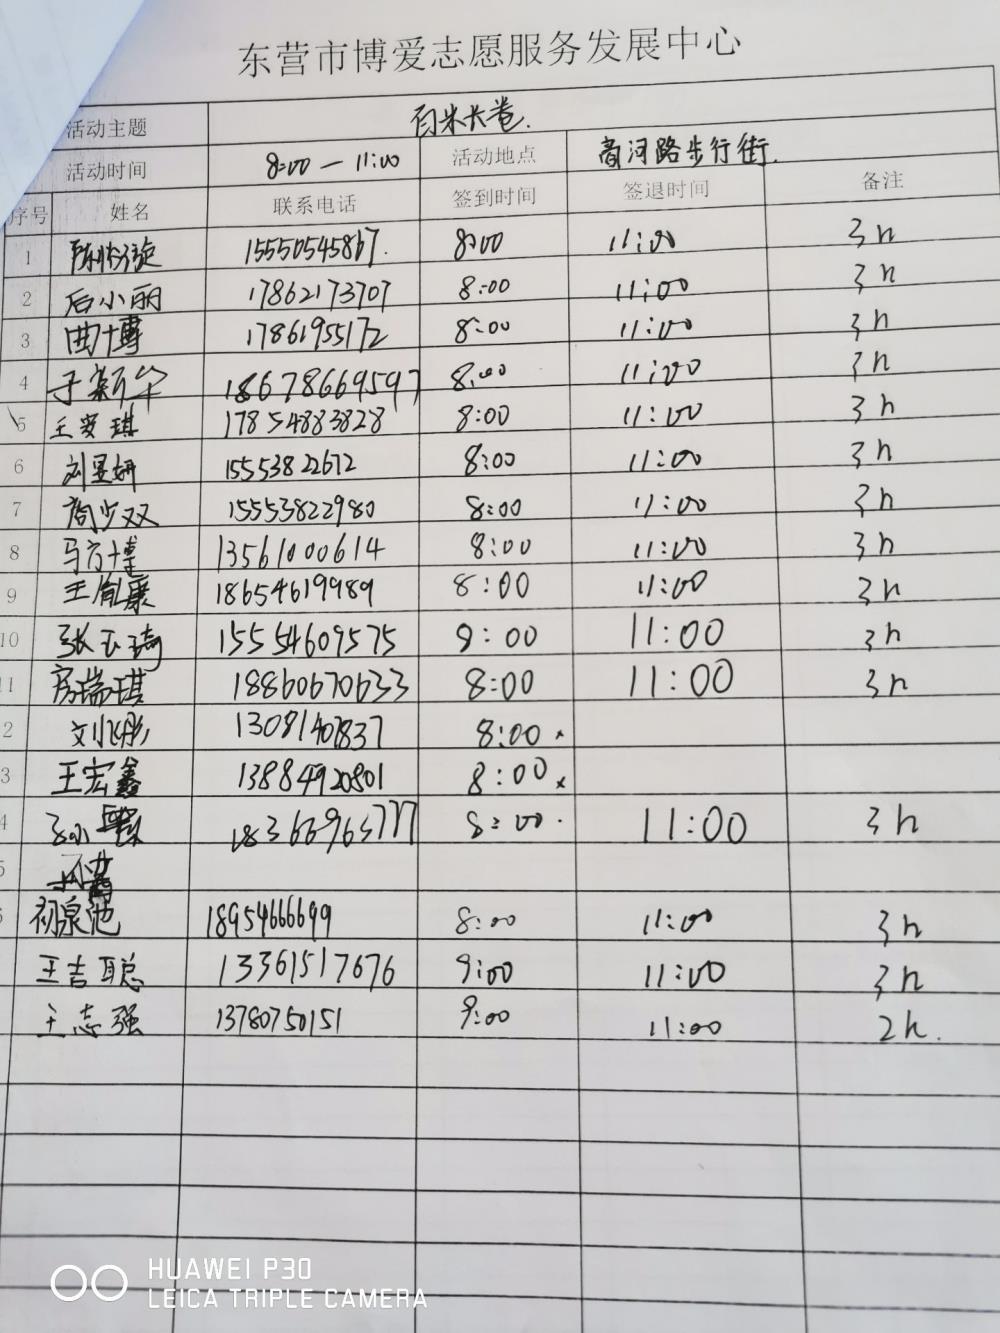 东营市博爱志愿服务发展中心
活动主题 百米长卷.
活动时间 8:00 — 11:00 活动地点 商河路步行街.
序号 姓名 联系电话 签到时间 签退时间 备注
1 15550545867. 8:00 11:00 3h
2 后小丽 17862173707 8:00 11:00 3h
3 曲博 17861955172 8:00 11:00 3h
4 于新华 18678669597 8:00 11:00 3h
5 王安琪 17854883828 8:00 11:00 3h
6 刘昱妍 15553822672 8:00 11:00 3h
7 商少双 15553822980 8:00 11:00 3h
8 马方博 13561000614 8:00 11:00 3h
9 王胤康 18654619989 8:00 11:00 3h
10 张玉琦 15554609575 8:00 11:00 3h
11 房瑞琪 18860670633 8:00 11:00 3h
2 刘飞彤 8:00
3 王宏鑫 13884920801 8:00
4 18366965777 8:00 11:00 3h
5
初泉池 18954666699 8:00 11:00 3h
王吉聪 13361517676 9:00 11:00 3h
王志强 13780750151 9:00 11:00 2h.
HUAWEI P30
LEICA TRIPLE CAMERA